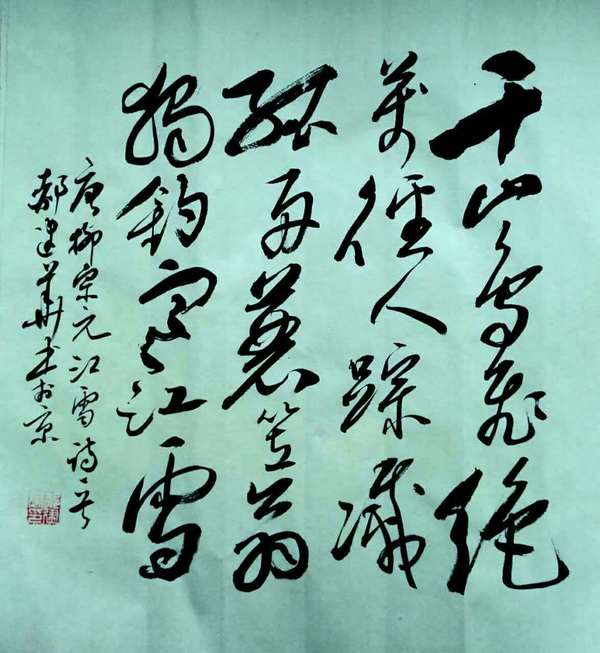 千山鸟飛绝
萬徑人踪滅
孤舟蓑笠翁
独钓寒江雪
唐柳宗元江雪诗一首
郝建華书於京